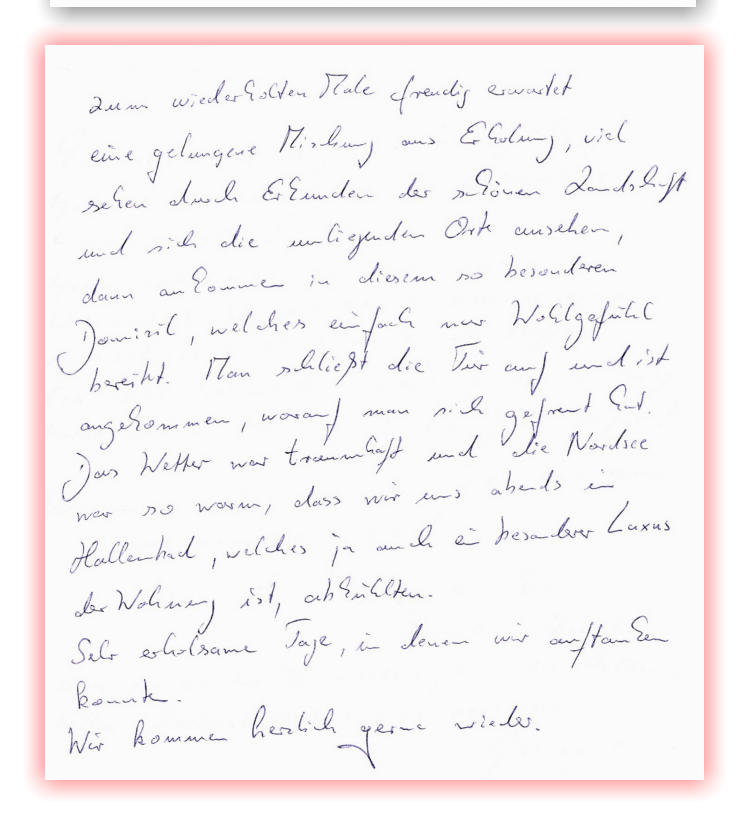 zum wiederholten Male freudig erwartet
eine gelungene Mischung aus Erholung, viel
sehen durch Erkunden der schönen Landschaft
und sich die umliegenden Orte ansehen,
dann ankommen in diesem so besonderen
Domizil, welches einfach nur Wohlgefühl
bereitet. Man schließt die Tür auf und ist
angekommen, worauf man sich gefreut hat.
Das Wetter war traumhaft und die Nordsee
war so warm, dass wir uns abends im
Hallenbad, welches ja auch ein besonderer Luxus
der Wohnung ist, abkühlten.
Sehr erholsame Tage, in denen wir auftanken
konnten.
Wir kommen herzlich gerne wieder.